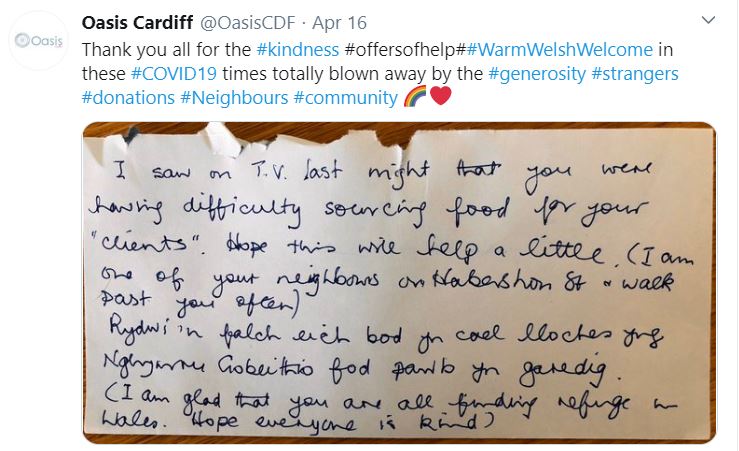 Oasis
Oasis Cardiff @OasisCDF · Apr 16
Thank you all for the #kindness #offersofhelp##WarmWelshWelcome in
these #COVID19 times totally blown away by the #generosity #strangers
#donations #Neighbours #community 🌈❤️
I saw on T.V. last night that you were
having difficulty sourcing food for your
"clients". Hope this will help a little. (I am
one of your neighbours on Habershon St & walk
past you often)
Rydwi'n falch eich bod yn cael lloches yng
Nghymru Gobeithio fod pawb yn garedig.
(I am glad that you are all finding refuge in
Wales. Hope everyone is kind)